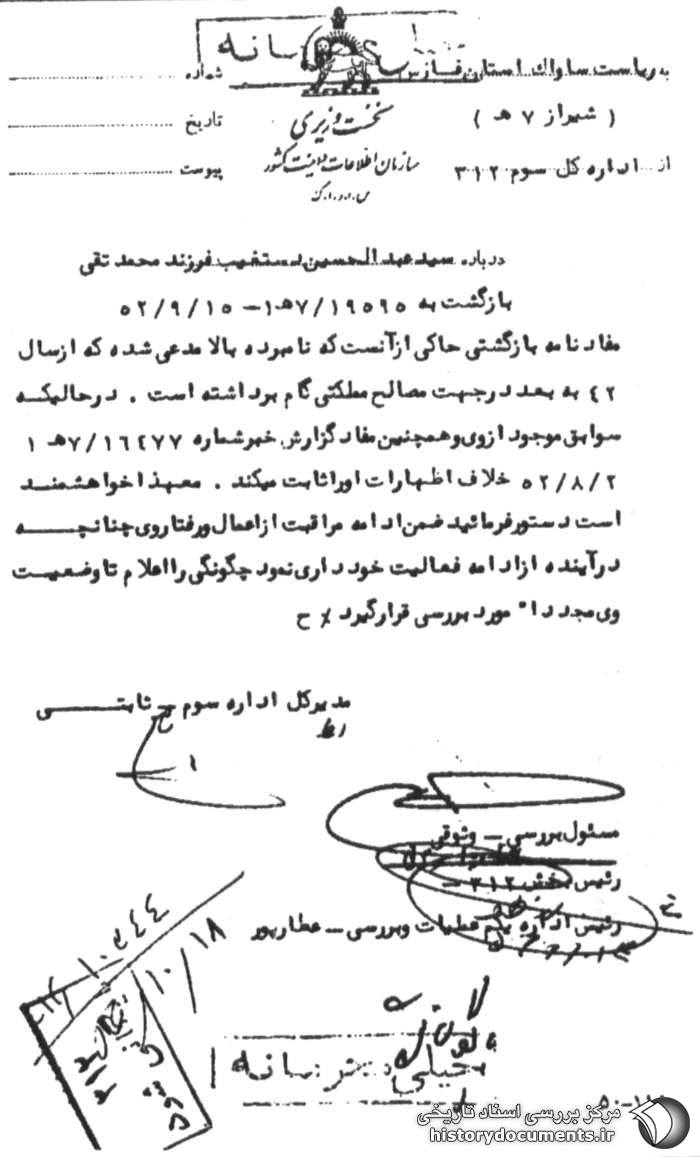 خیلی محرمانه
به ریاست ساواك استان فارس
شماره
( شیراز ۷ هـ )
نخست وزیری
تاریخ
از اداره کل سوم ۳۱۲
سازمان اطلاعات و امنیت کشور
پیوست
س.ا.و.ا.ک
درباره سید عبدالحسین دستغیب فرزند محمد تقی
بازگشت به ۷/۱۹۵۹۵هـ۱ – ۵۲/۹/۱۵
مفاد نامه بازگشتی حاکی از آنست که نامبرده بالا مدعی شده که از سال
۴۲ به بعد در جهت مصالح مملکتی گام برداشته است . در حالیکه
سوابق موجود از وی و همچنین مفاد گزارش خبر شماره ۷/۱۶۴۷۷هـ ۱
۵۲/۸/۲ خلاف اظهارات او را ثابت میکند . معهذا خواهشمند
است دستور فرمائید ضمن ادامه مراقبت از اعمال و رفتار وی چنانچه
در آینده از ادامه فعالیت خود داری نمود چگونگی را اعلام تا وضعیت
وی مجددا" مورد بررسی قرار گیرد ٪ ح
مدیر کل اداره سوم – ثابتی
مسئول بررسی – وثوقی
رئیس بخش ۳۱۲ –
رئیس اداره یکم عملیات و بررسی – عطارپور
۱۰/۱۸
۳۱۲
خیلی محرمانه
مرکز بررسی اسناد تاریخی
historydocuments.ir